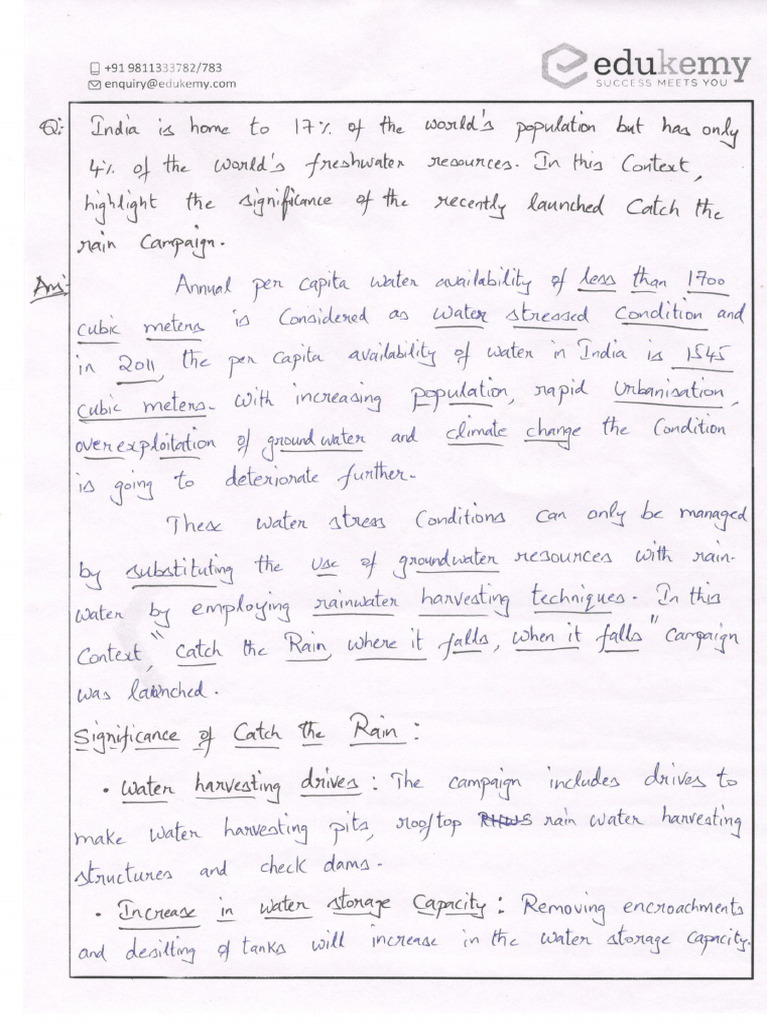 +91 9811333782/783
enquiry@edukemy.com
edukemy
SUCCESS MEETS YOU
Q: India is home to 17% of the world's population but has only
4% of the world's freshwater resources. In this Context,
highlight the significance of the recently launched Catch the
rain Campaign.
Ans: Annual per capita water availability of less than 1700
cubic meters is Considered as water stressed Condition and
in 2011, the per capita availability of water in India is 1545
cubic meters. With increasing population, rapid Urbanisation,
over exploitation of ground water and climate change the Condition
is going to deteriorate further.
These water stress Conditions can only be managed
by substituting the use of groundwater resources with rain-
water by employing rainwater harvesting techniques. In this
Context, "Catch the Rain, where it falls, when it falls" Campaign
was launched.
Significance of Catch the Rain:
• Water harvesting drives: The campaign includes drives to
make water harvesting pits, rooftop RHWS rain water harvesting
structures and check dams.
• Increase in water storage Capacity: Removing encroachments
and desilting of tanks will increase in the water storage capacity.